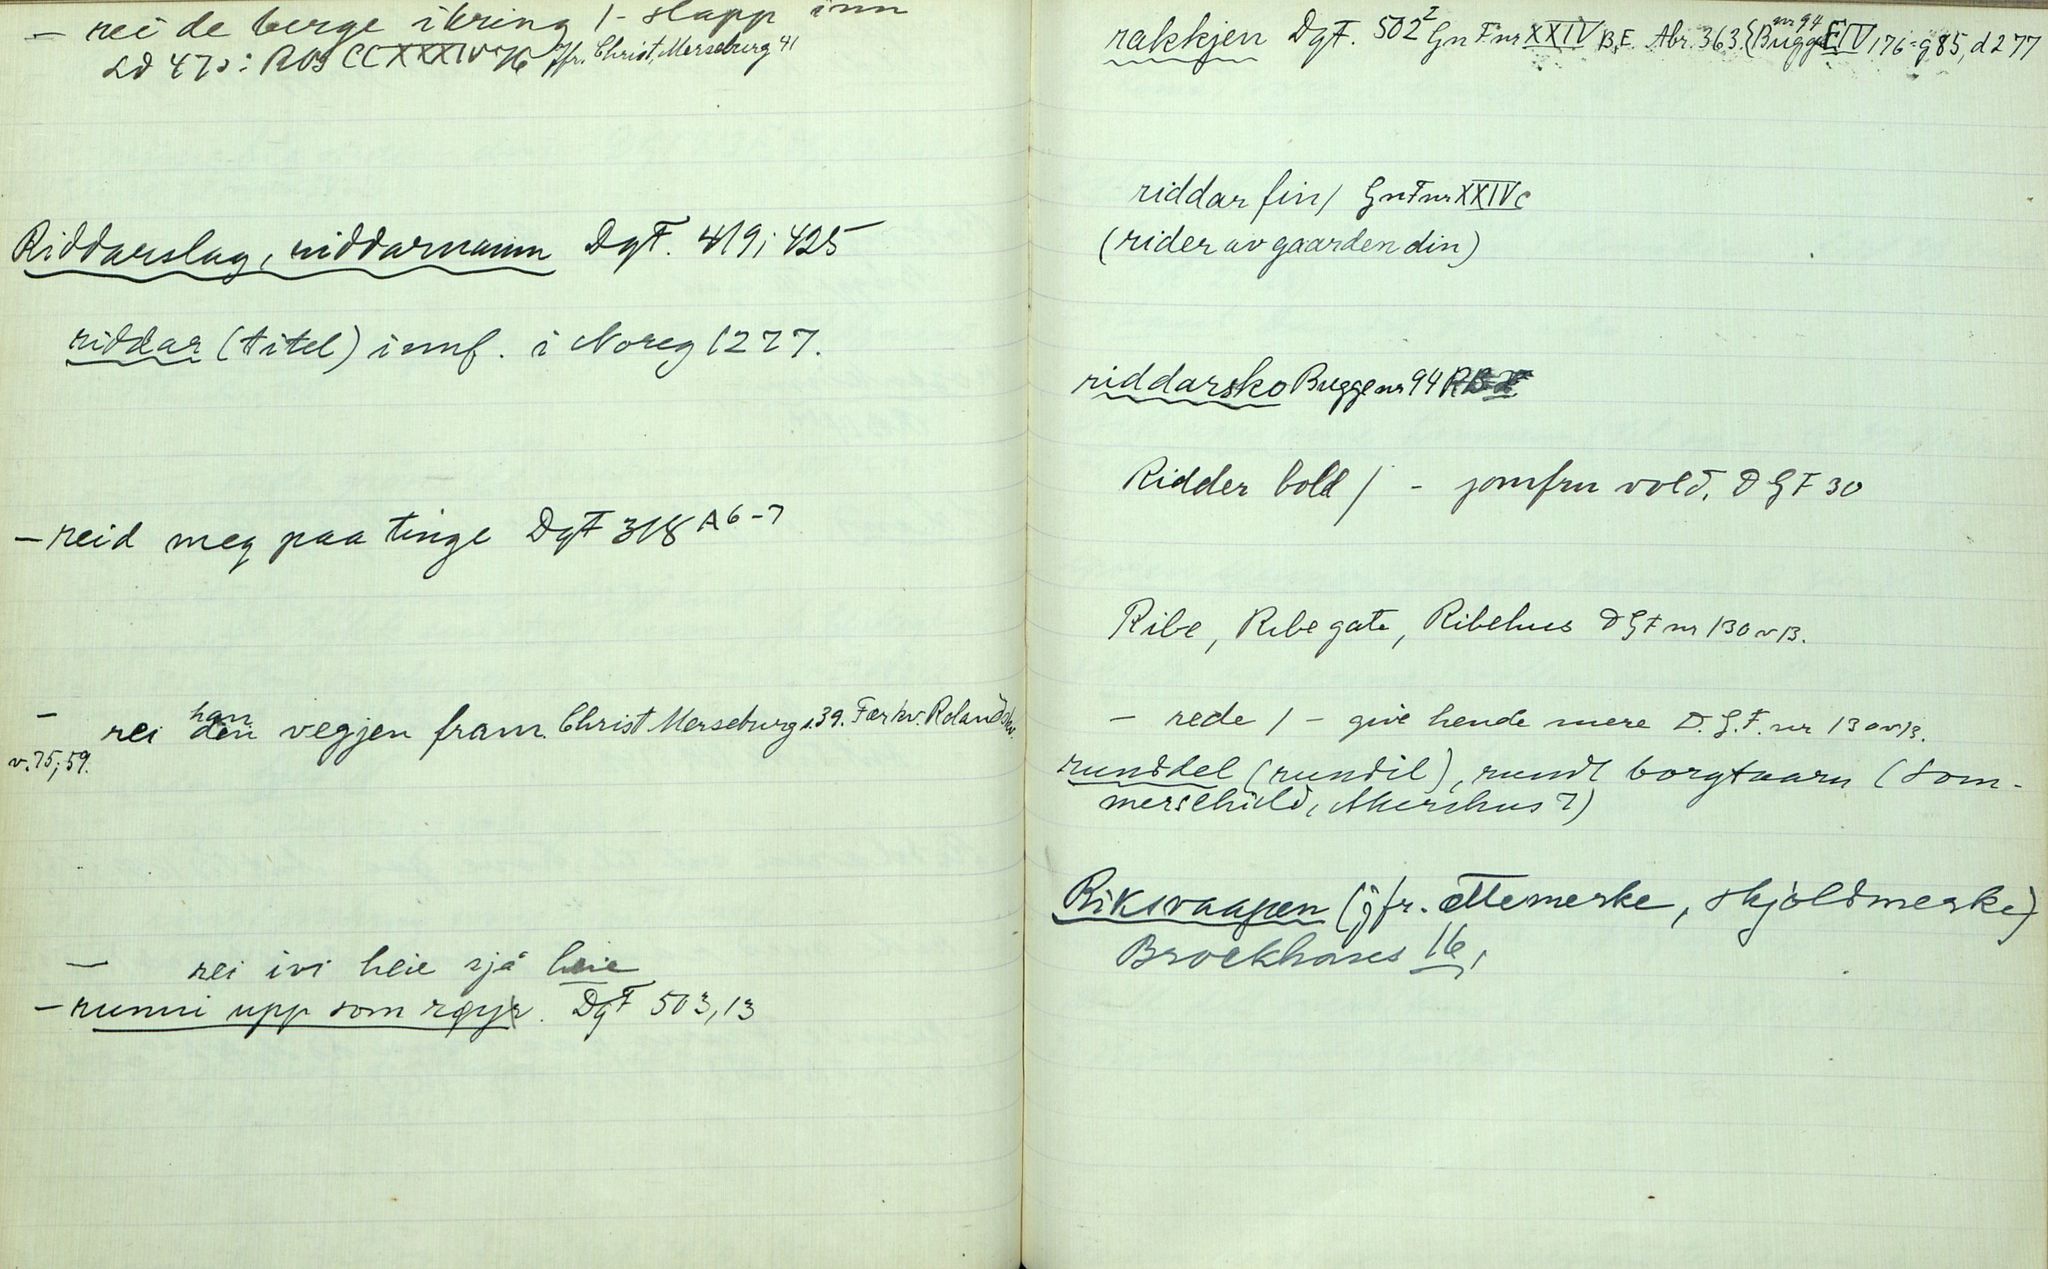 – rei de berge ikring / – slapp inn
Ld 47 : ROS CCXXXIV v 16 Jfr. Christ, Merseburg 41
Riddarslag, riddarnamn DgF. 419; 425
riddar (titel) innf. i Noreg 1277.
– reid meg paa tinge DgF 318 A 6–7
– rei han den vegjen fram. Christ Merseburg s. 39. Færkv. Rolandskv.
v. 75; 59.
– rei ivi heie sjå heie
– runni upp som røyr. DgF 503, 13
rakkjen DgF. 502 I Gn F nr XXIV B, E. Abr. 363. (Bugge nr 94 F IV 176 = g 85, d 277
riddar fin / Gn F nr XXIV c
(rider av gaarden din)
riddarsko Bugge nr 94
Ridder bold / – jomfru vold. DGF 30
Ribe, Ribe gate, Ribehus DGF nr 130 v B.
– rede / – give hende mere D.G.F. nr 130 v B.
runddel (rundil), rundt borgtaarn (Som-
merschild, Akershus 7)
Riksvaapen (jfr. ættemerke, skjoldmerke)
Brockhaus 16,